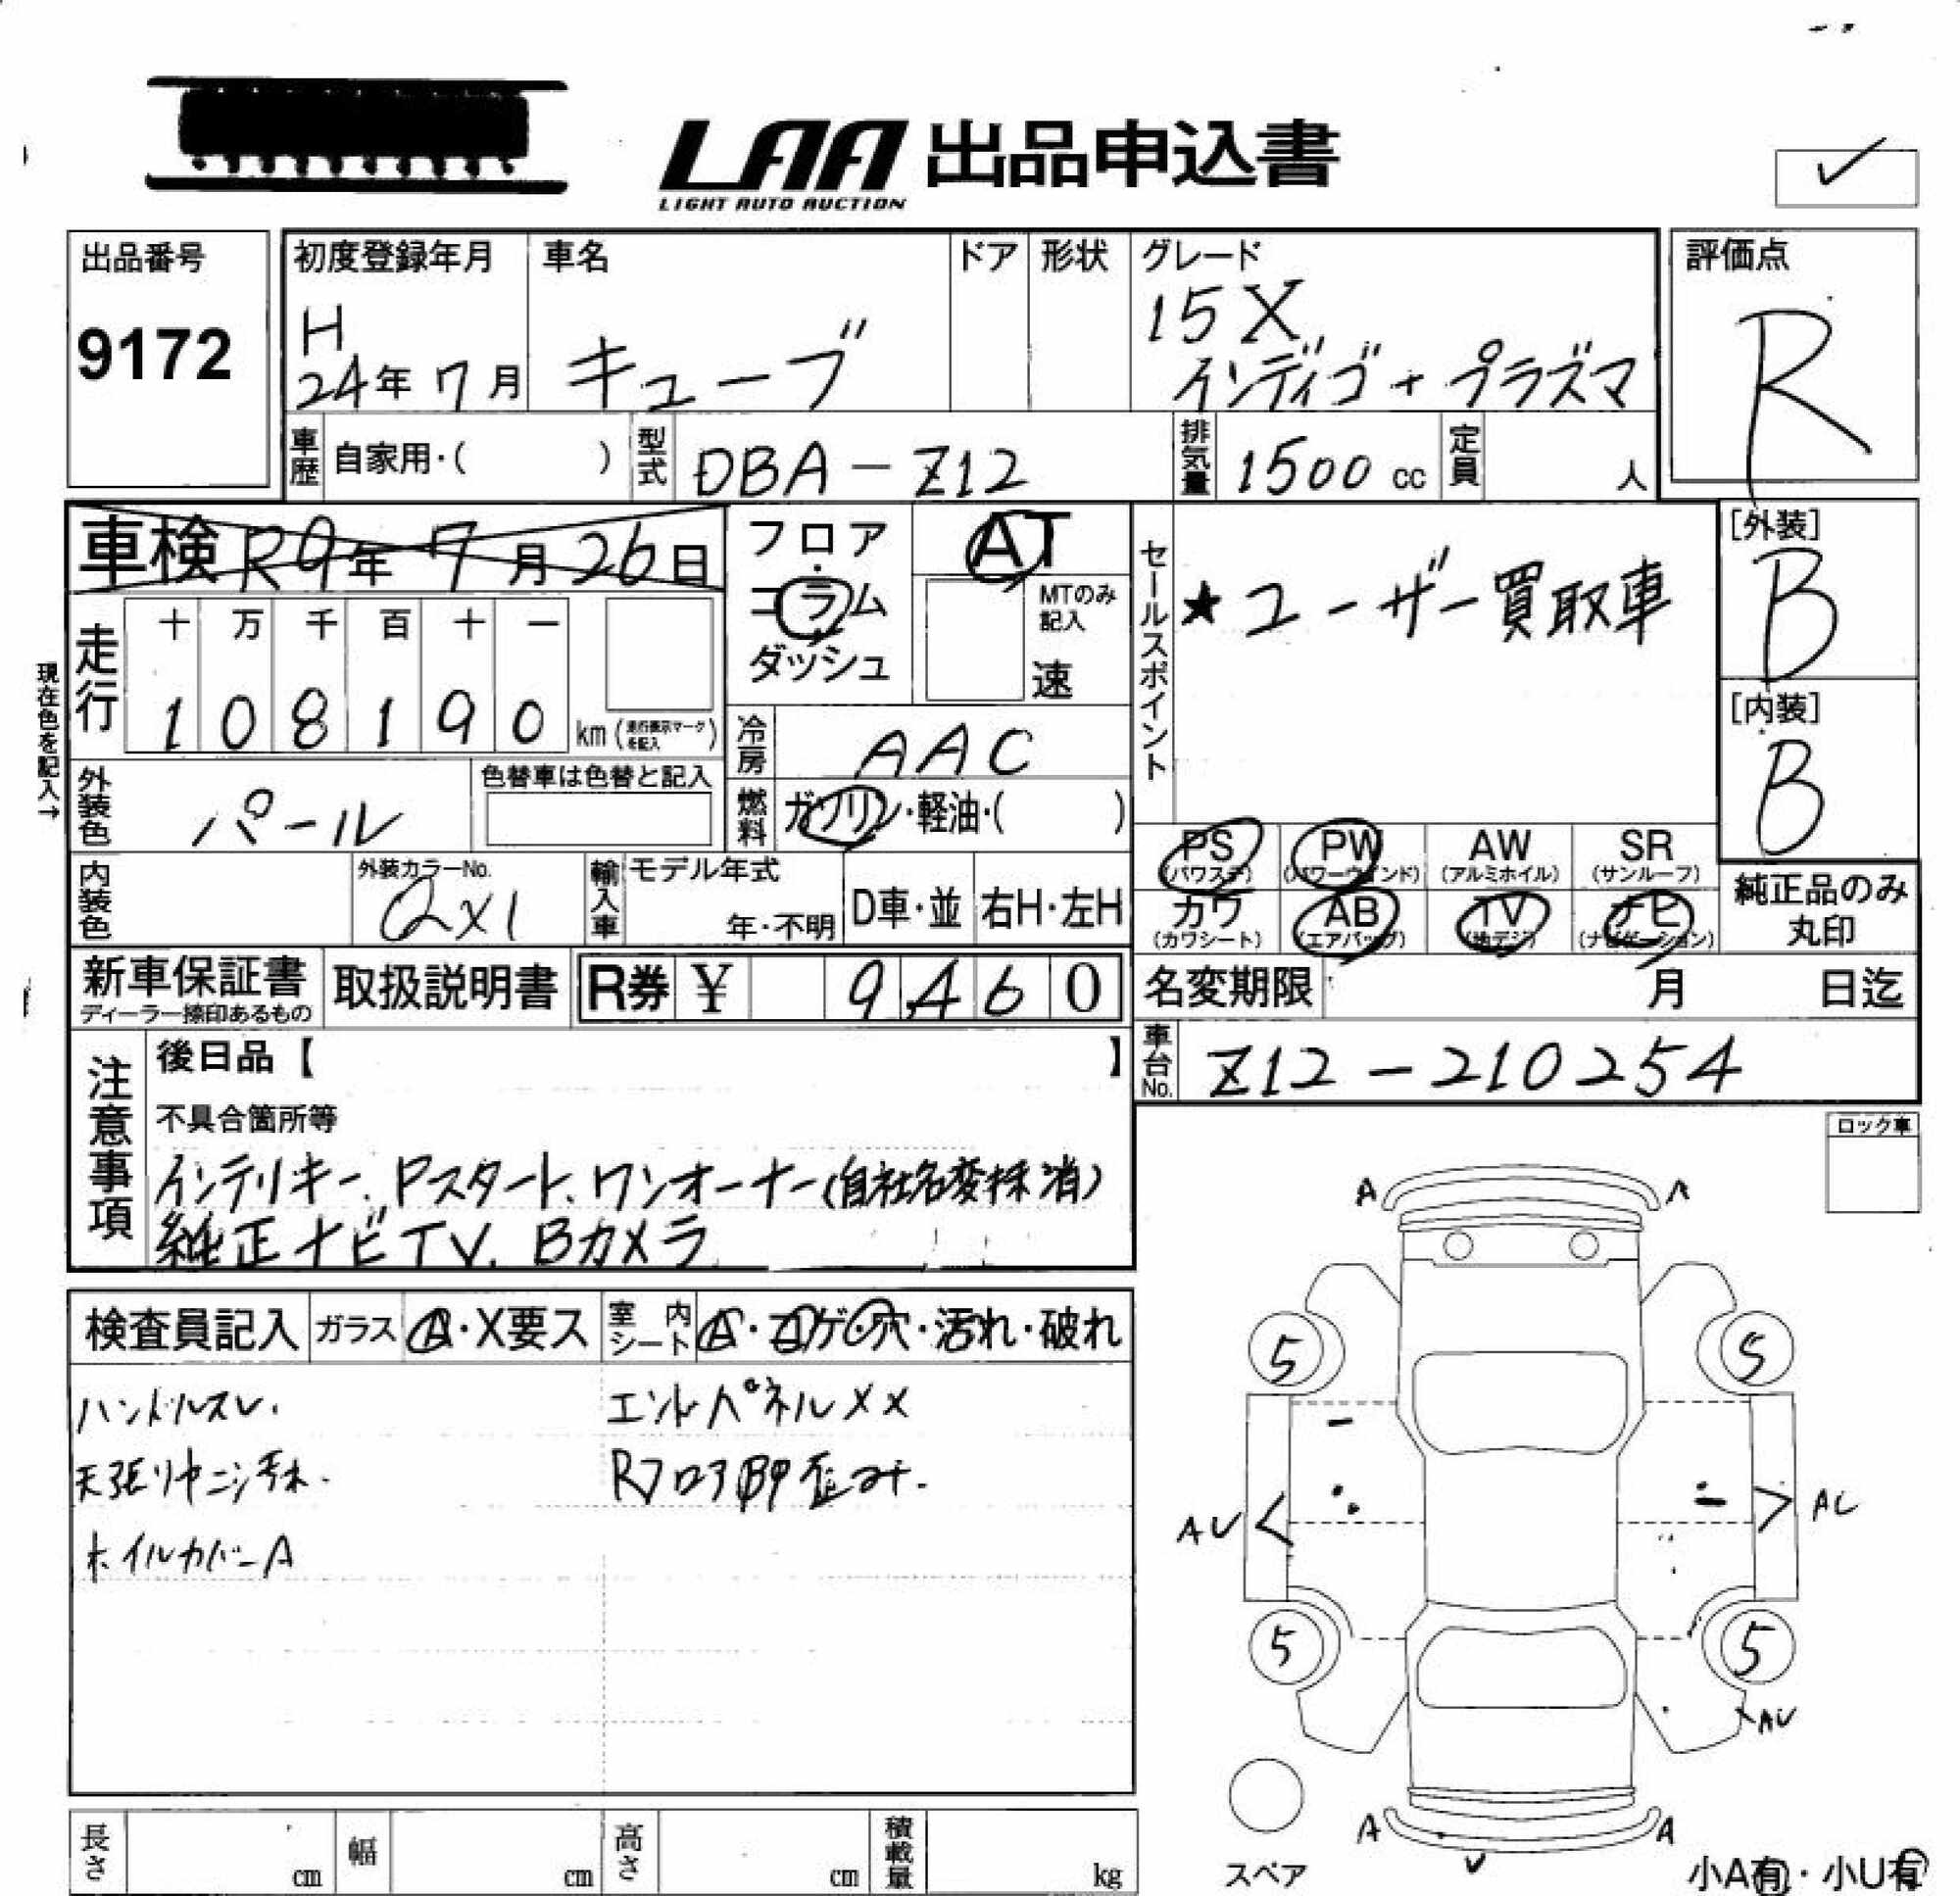 LAA 出品申込書
LIGHT AUTO AUCTION
出品番号
9172
初度登録年月
H
24年 7月
車名
キューブ
ドア
形状
グレード
15X
インディゴ+プラズマ
評価点
R
車歴 自家用・( )
型式 DBA-Z12
排気量 1500 cc
定員 人
車検 R9年 7月 26日
フロア・コラム・ダッシュ
AT
MTのみ記入
速
セールスポイント
★ユーザー買取車
[外装]
B
[内装]
B
現在色を記入→
走行
十 万 千 百 十 一
1 0 8 1 9 0 km (走行表示マークを記入)
冷房 AAC
外装色 パール
色替車は色替と記入
燃料 ガソリン・軽油・( )
PS (パワステ)
PW (パワーウインド)
AW (アルミホイル)
SR (サンルーフ)
カワ (カワシート)
AB (エアバッグ)
TV (地デジ)
ナビ (ナビゲーション)
純正品のみ丸印
内装色
外装カラーNo.
QX1
輸入車
モデル年式
年・不明
D車・並
右H・左H
新車保証書
ディーラー捺印あるもの
取扱説明書
R券 ¥ 9460
名変期限 月 日迄
車台No. Z12-210254
注意事項
後日品【 】
不具合箇所等
インテリキー、Pスタート、ワンオーナー(自社名変抹消)
純正ナビTV、Bカメラ
ロック車
検査員記入
ガラス A・X要ス
室内シート A・コゲ・穴・汚れ・破れ
ハンドルスレ.
エンドパネルXX
天張リヤニシ汚れ.
Rフロア凹歪み.
ホイルカバーA
A A
5 5
AU AU
5 5
AU
A A
U
スペア
小A有・小U有
長さ cm
幅 cm
高さ cm
積載量 kg